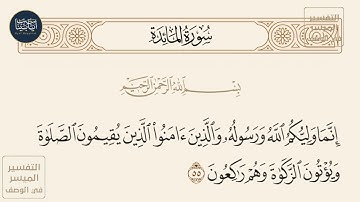 التفسير
الميسر
في الوصف
سُورَةُ المَائِدَةِ
بِسْمِ ٱللَّهِ ٱلرَّحْمَٰنِ ٱلرَّحِيمِ
إِنَّمَا وَلِيُّكُمُ ٱللَّهُ وَرَسُولُهُۥ وَٱلَّذِينَ ءَامَنُوا۟ ٱلَّذِينَ يُقِيمُونَ ٱلصَّلَوٰةَ
وَيُؤْتُونَ ٱلزَّكَوٰةَ وَهُمْ رَٰكِعُونَ ٥٥
التفسير
الميسر
في الوصف